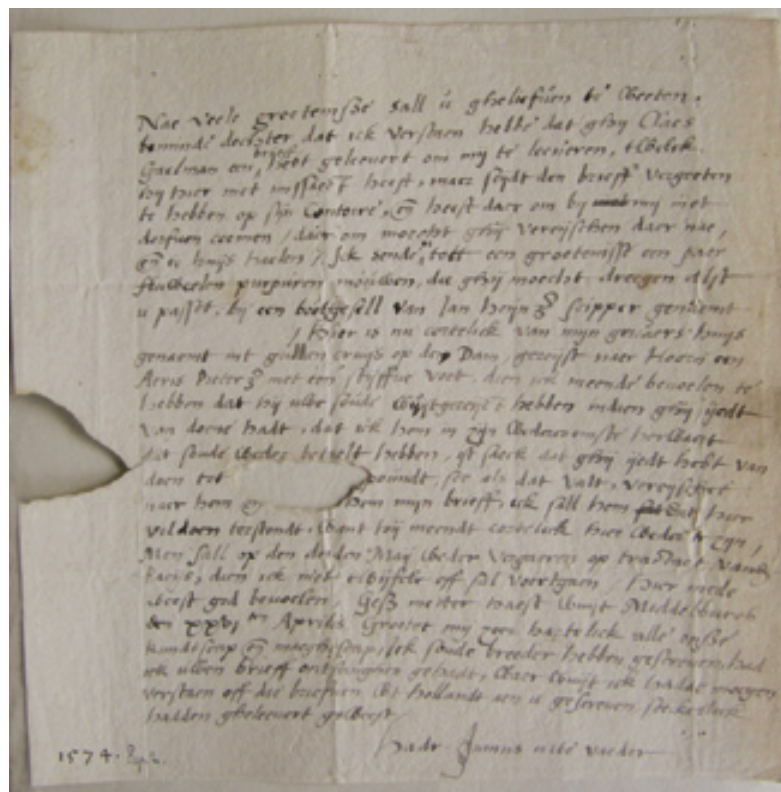 Nae veele groetenisse sall u ghelieven te weeten,
beminde dochter dat ick verstaen hebbe dat ghij Claes
Gaelman een brieff hebt geleevert om mij te leeveren, twelck
hij hier met heeft, maer seijdt den brieff vergeeten
te hebben op sijn Contoire, en heeft daer om bij mij niet
derfven coemen / daer om moecht ghij vereijschen daer nae,
en t huijs haelen / Ick sende u tott een groetenisse een paer
fluweelen purpuren mouwen, die ghij moecht dreegen alst
u past, bij een bootgesell van Jan Heijn scipper genaemt
/ Hier is nu cortelick van mijn huijs
genaemt int gulden cruijs op den Dam, gereijst naer Hoorn een
Aeris Pieter met een stijffve voet, dien ick meende bevolen te
hebben dat hij ulve soude hebben indien ghij ijedt
van doene hadt, dat ick hem in zijn wedercomste
dat soude weder betaelt hebben, ist saeck dat ghij ijedt hebt van
doen tot poundt, soe als dat valt, vereijschet
naer hem en hem mijn brieff, ick sall hem dat hier
voldoen terstondt, want hij meendt cortelick hier weder te zijn /
Men sall op den derden Maij weder vergaeren op tractaet van
Paeis, dien ick niet off sal voortgaen / Hier mede
weest god bevolen, metter haest wuijt Middelburch
den xxvi en Aprilis Groetet mij zeer hartelick alle onse
kundtscap en maeghscap, Ick soude breeder hebben gescreven, had
ick ulven brieff ontfanghen gehadt, waer wuijt ick hadde moegen
verstaen off die brieven wt Hollandt aen u gescreven
hadden gheleevert geweest
Hadr. Junius ulve vaeder
1574.